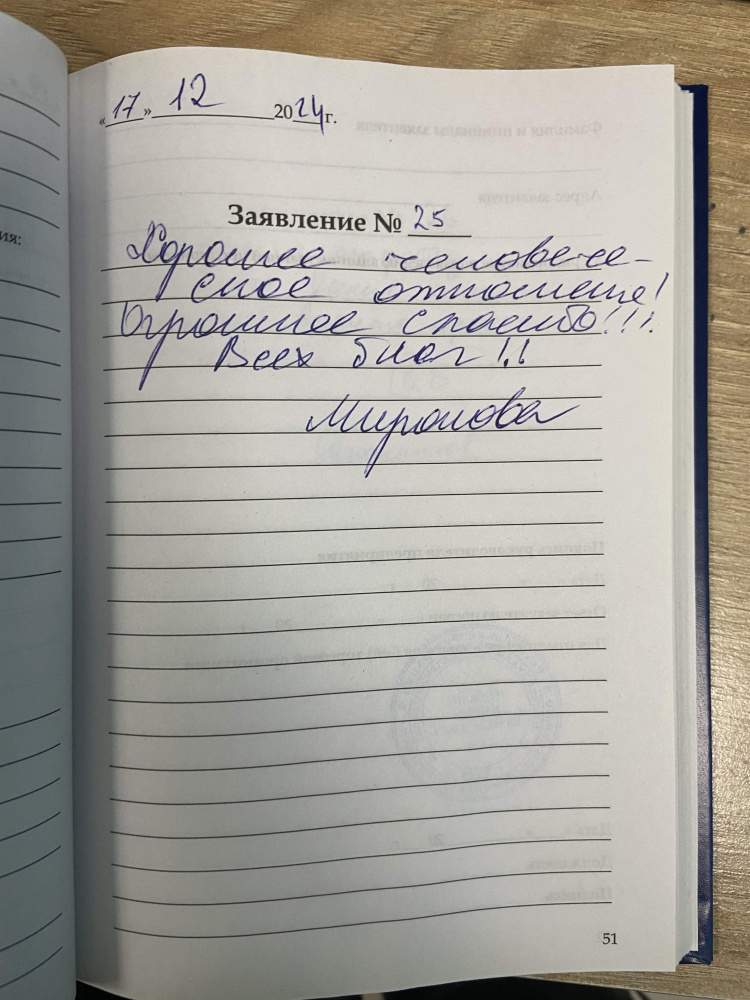 «17» 12 2024 г.
Заявление № 25
Хорошее человече-
ское отношение!
Огромное спасибо!!!
Всех благ!!
Миронова
ия:
51